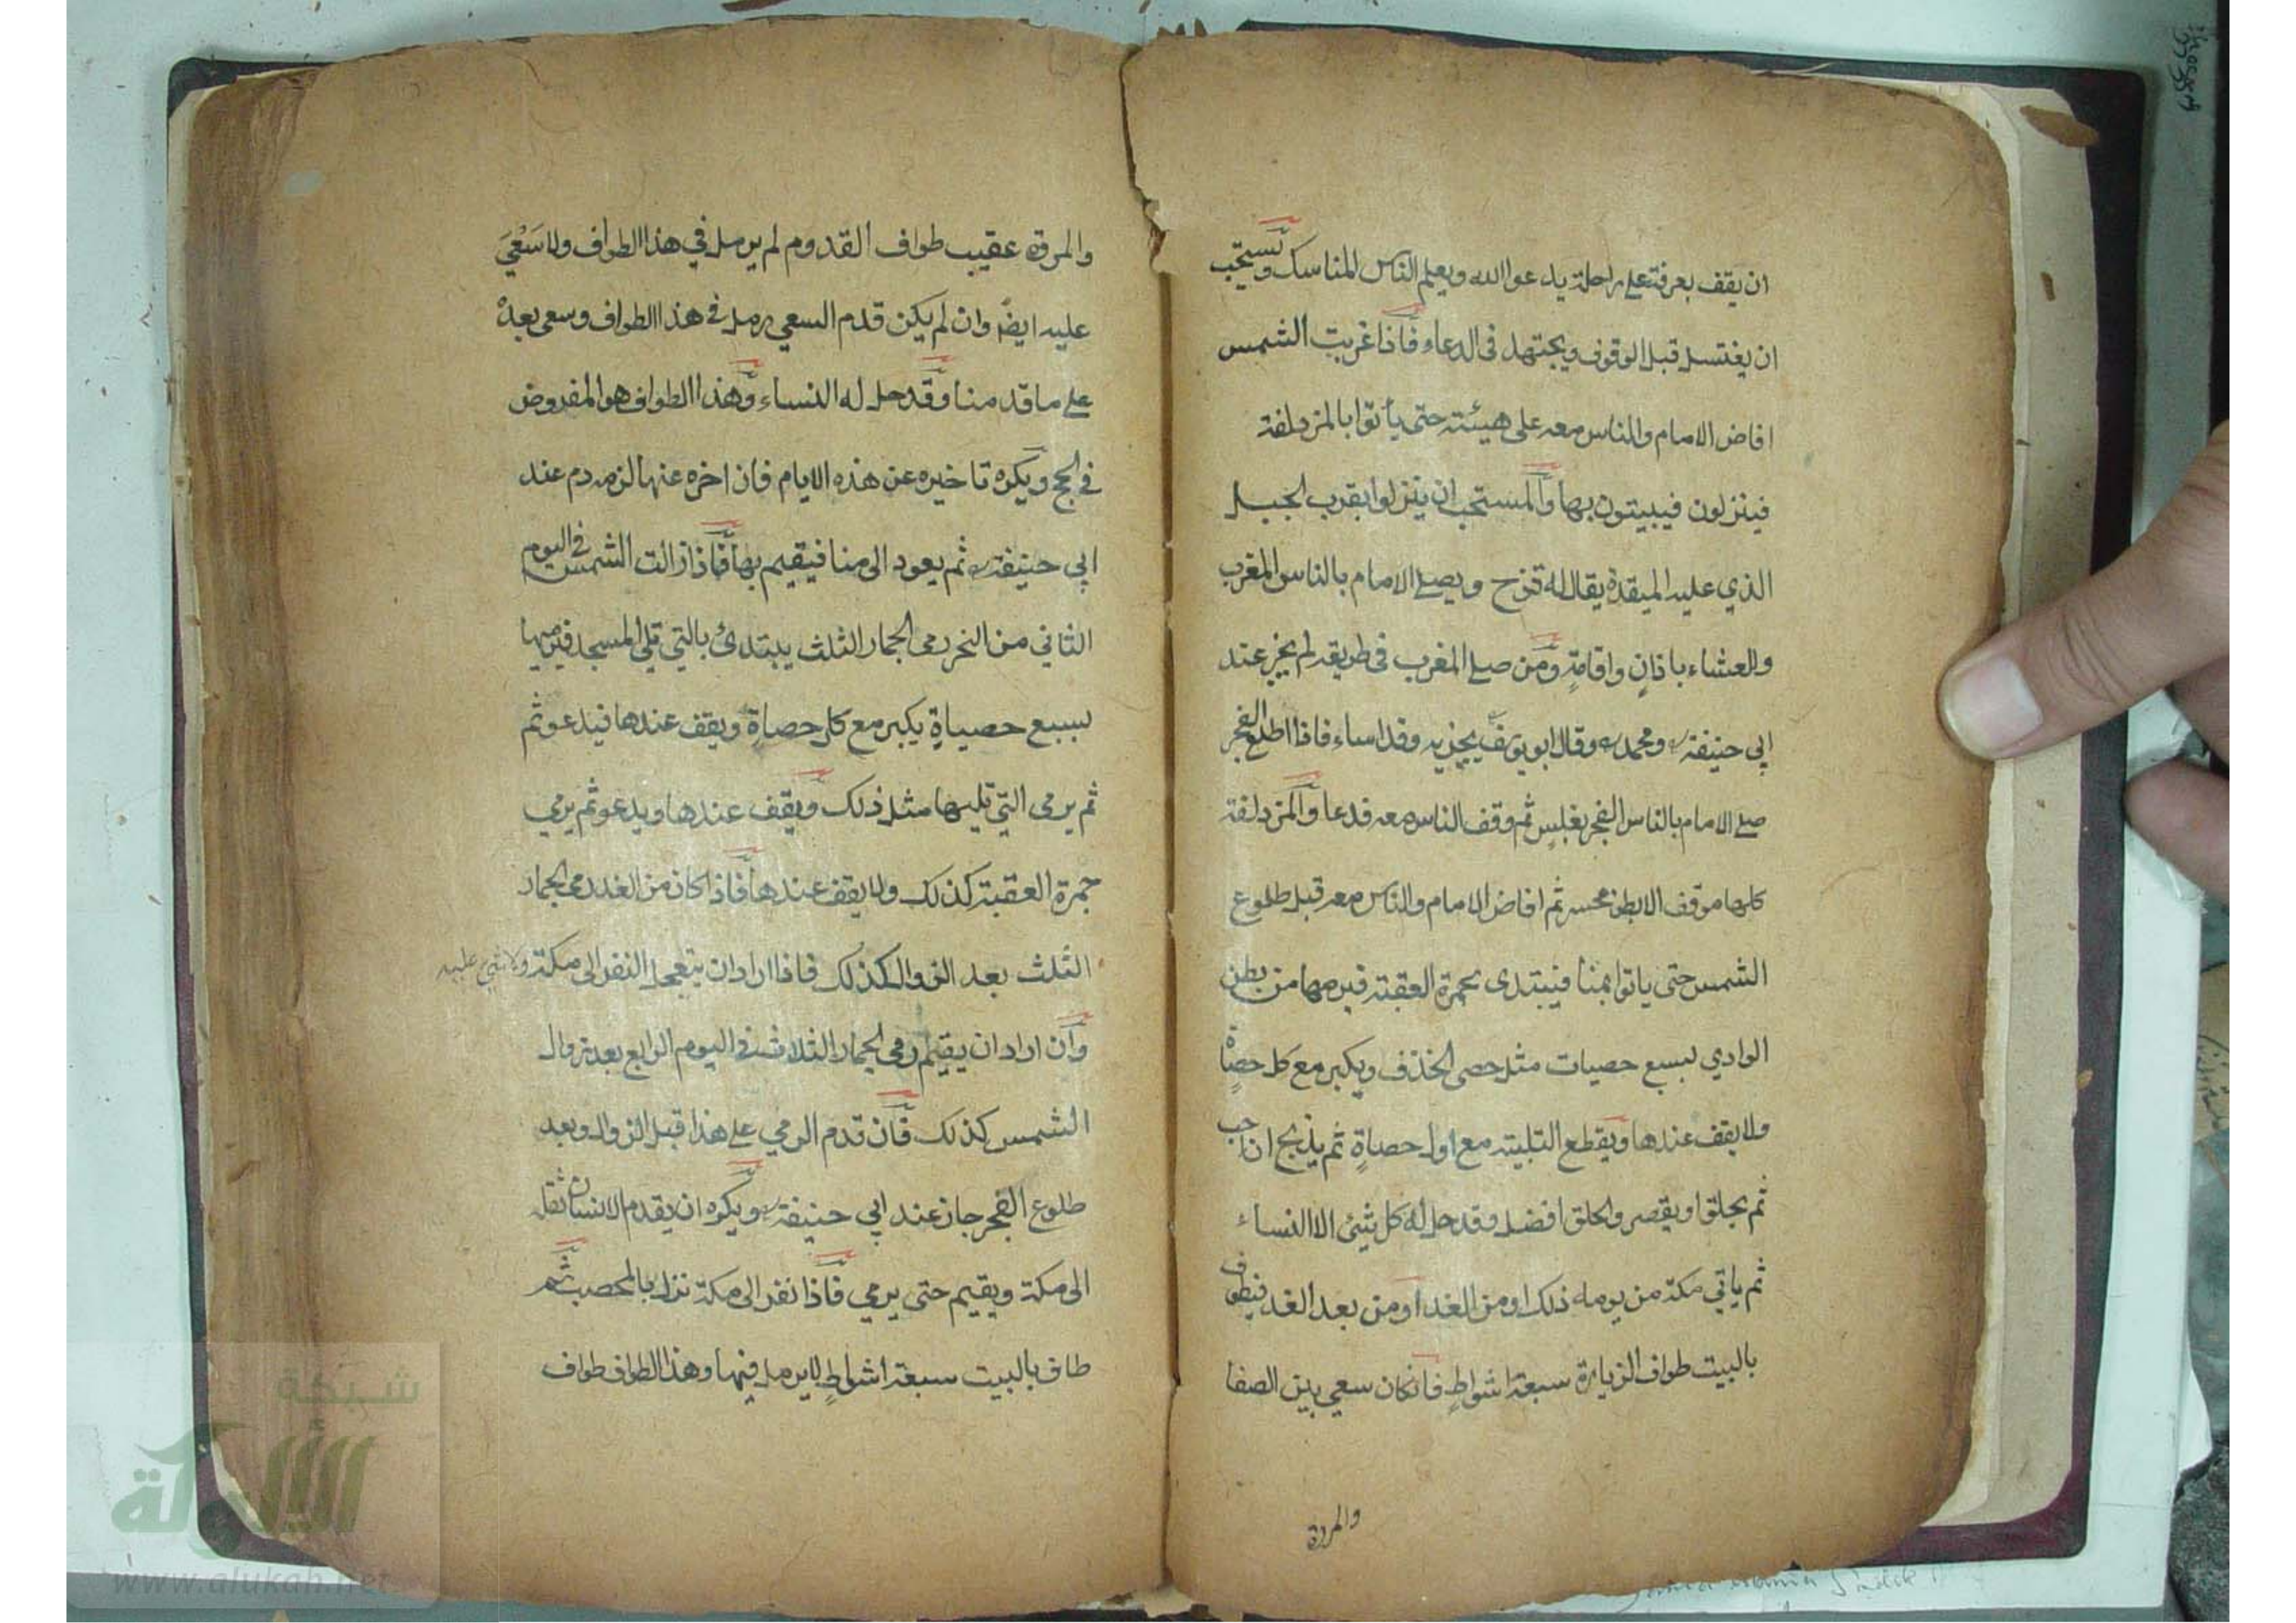 ان يقف بعرفة على راحلة يدعوا الله ويعلم الناس المناسك ويستحب
ان يغتسل قبل الوقوف ويجتهد فى الدعاء فاذا غربت الشمس
افاض الامام والناس معه على هيئته حتى يأتوا بالمزدلفة
فينزلون فيبيتون بها والمستحب ان ينزلوا بقرب الجبل
الذي عليه الميقدة يقال له قزح ويصلى الامام بالناس المغرب
والعشاء باذانٍ واقامةٍ ومن صلى المغرب فى طريقه لم يجز عند
ابي حنيفة ومحمد وقال ابو يوسف يجزيه وقد اساء فاذا اطلع الفجر
صلى الامام بالناس الفجر بغلسٍ ثم وقف الناس معه فدعا والمزدلفة
كلها موقف الا بطن محسر ثم افاض الامام والناس معه قبل طلوع
الشمس حتى ياتوا بمنا فيبتدى بجمرة العقبة فيرميها من بطن
الوادي لسبع حصيات مثل حصى الخذف ويكبر مع كل حصاة
ولا يقف عندها ويقطع التلبية مع اول حصاةٍ ثم يذبح ان احب
ثم يحلق او يقصر والحلق افضل وقد حل له كل شيئ الا النساء
ثم ياتي مكة من يومه ذلك او من الغد او من بعد الغد فيطوف
بالبيت طواف الزيارة سبعة اشواطٍ فانكان سعي بين الصفا
والمروة
والمروة عقيب طواف القدوم لم يرمل في هذا الطواف ولا سَعْيَ
عليه ايضًا وان لم يكن قدم السعي رمل فى هذا الطواف وسعى بعده
على ما قدمنا وقد حل له النساء وهذا الطواف هو المفروض
فى الحج ويكره تاخيره عن هذه الايام فان اخره عنها لزمه دم عند
ابي حنيفة ثم يعود الى منا فيقيم بها فاذا زالت الشمس فى اليوم
الثاني من النحر رمى الجمار الثلث يبتدئ بالتي تلى المسجد فيرميها
لسبع حصياةٍ يكبر مع كل حصاةٍ ويقف عندها فيدعو ثم
ثم يرمى التي تليها مثل ذلك ويقف عندها ويدعو ثم يرمي
جمرة العقبة كذلك ولا يقف عندها فاذا كان من الغد رمى الجمار
الثلث بعد الزوال كذلك فاذا اراد ان يتعجل النفر الى مكة ولا شئ عليه
وان اراد ان يقيم رمى الجمار الثلاث فى اليوم الرابع بعد زوال
الشمس كذلك فان قدم الرمي على هذا قبل الزوال وبعد
طلوع الفجر جاز عند ابي حنيفة ويكره ان يقدم الانسان ثقله
الى مكة ويقيم حتى يرمي فاذا نفر الى مكة نزل بالمحصب ثم
طاف بالبيت سبعة اشواطٍ لا يرمل فيها وهذا الطواف طواف
شبكة
الألوكة
www.alukah.net